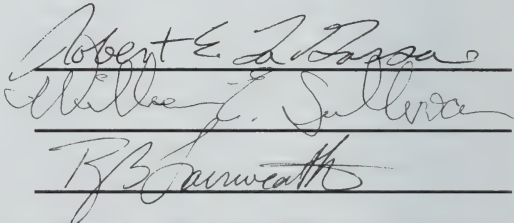 Robert E. La Bossa
William E. Sullivan
R B Fairweath